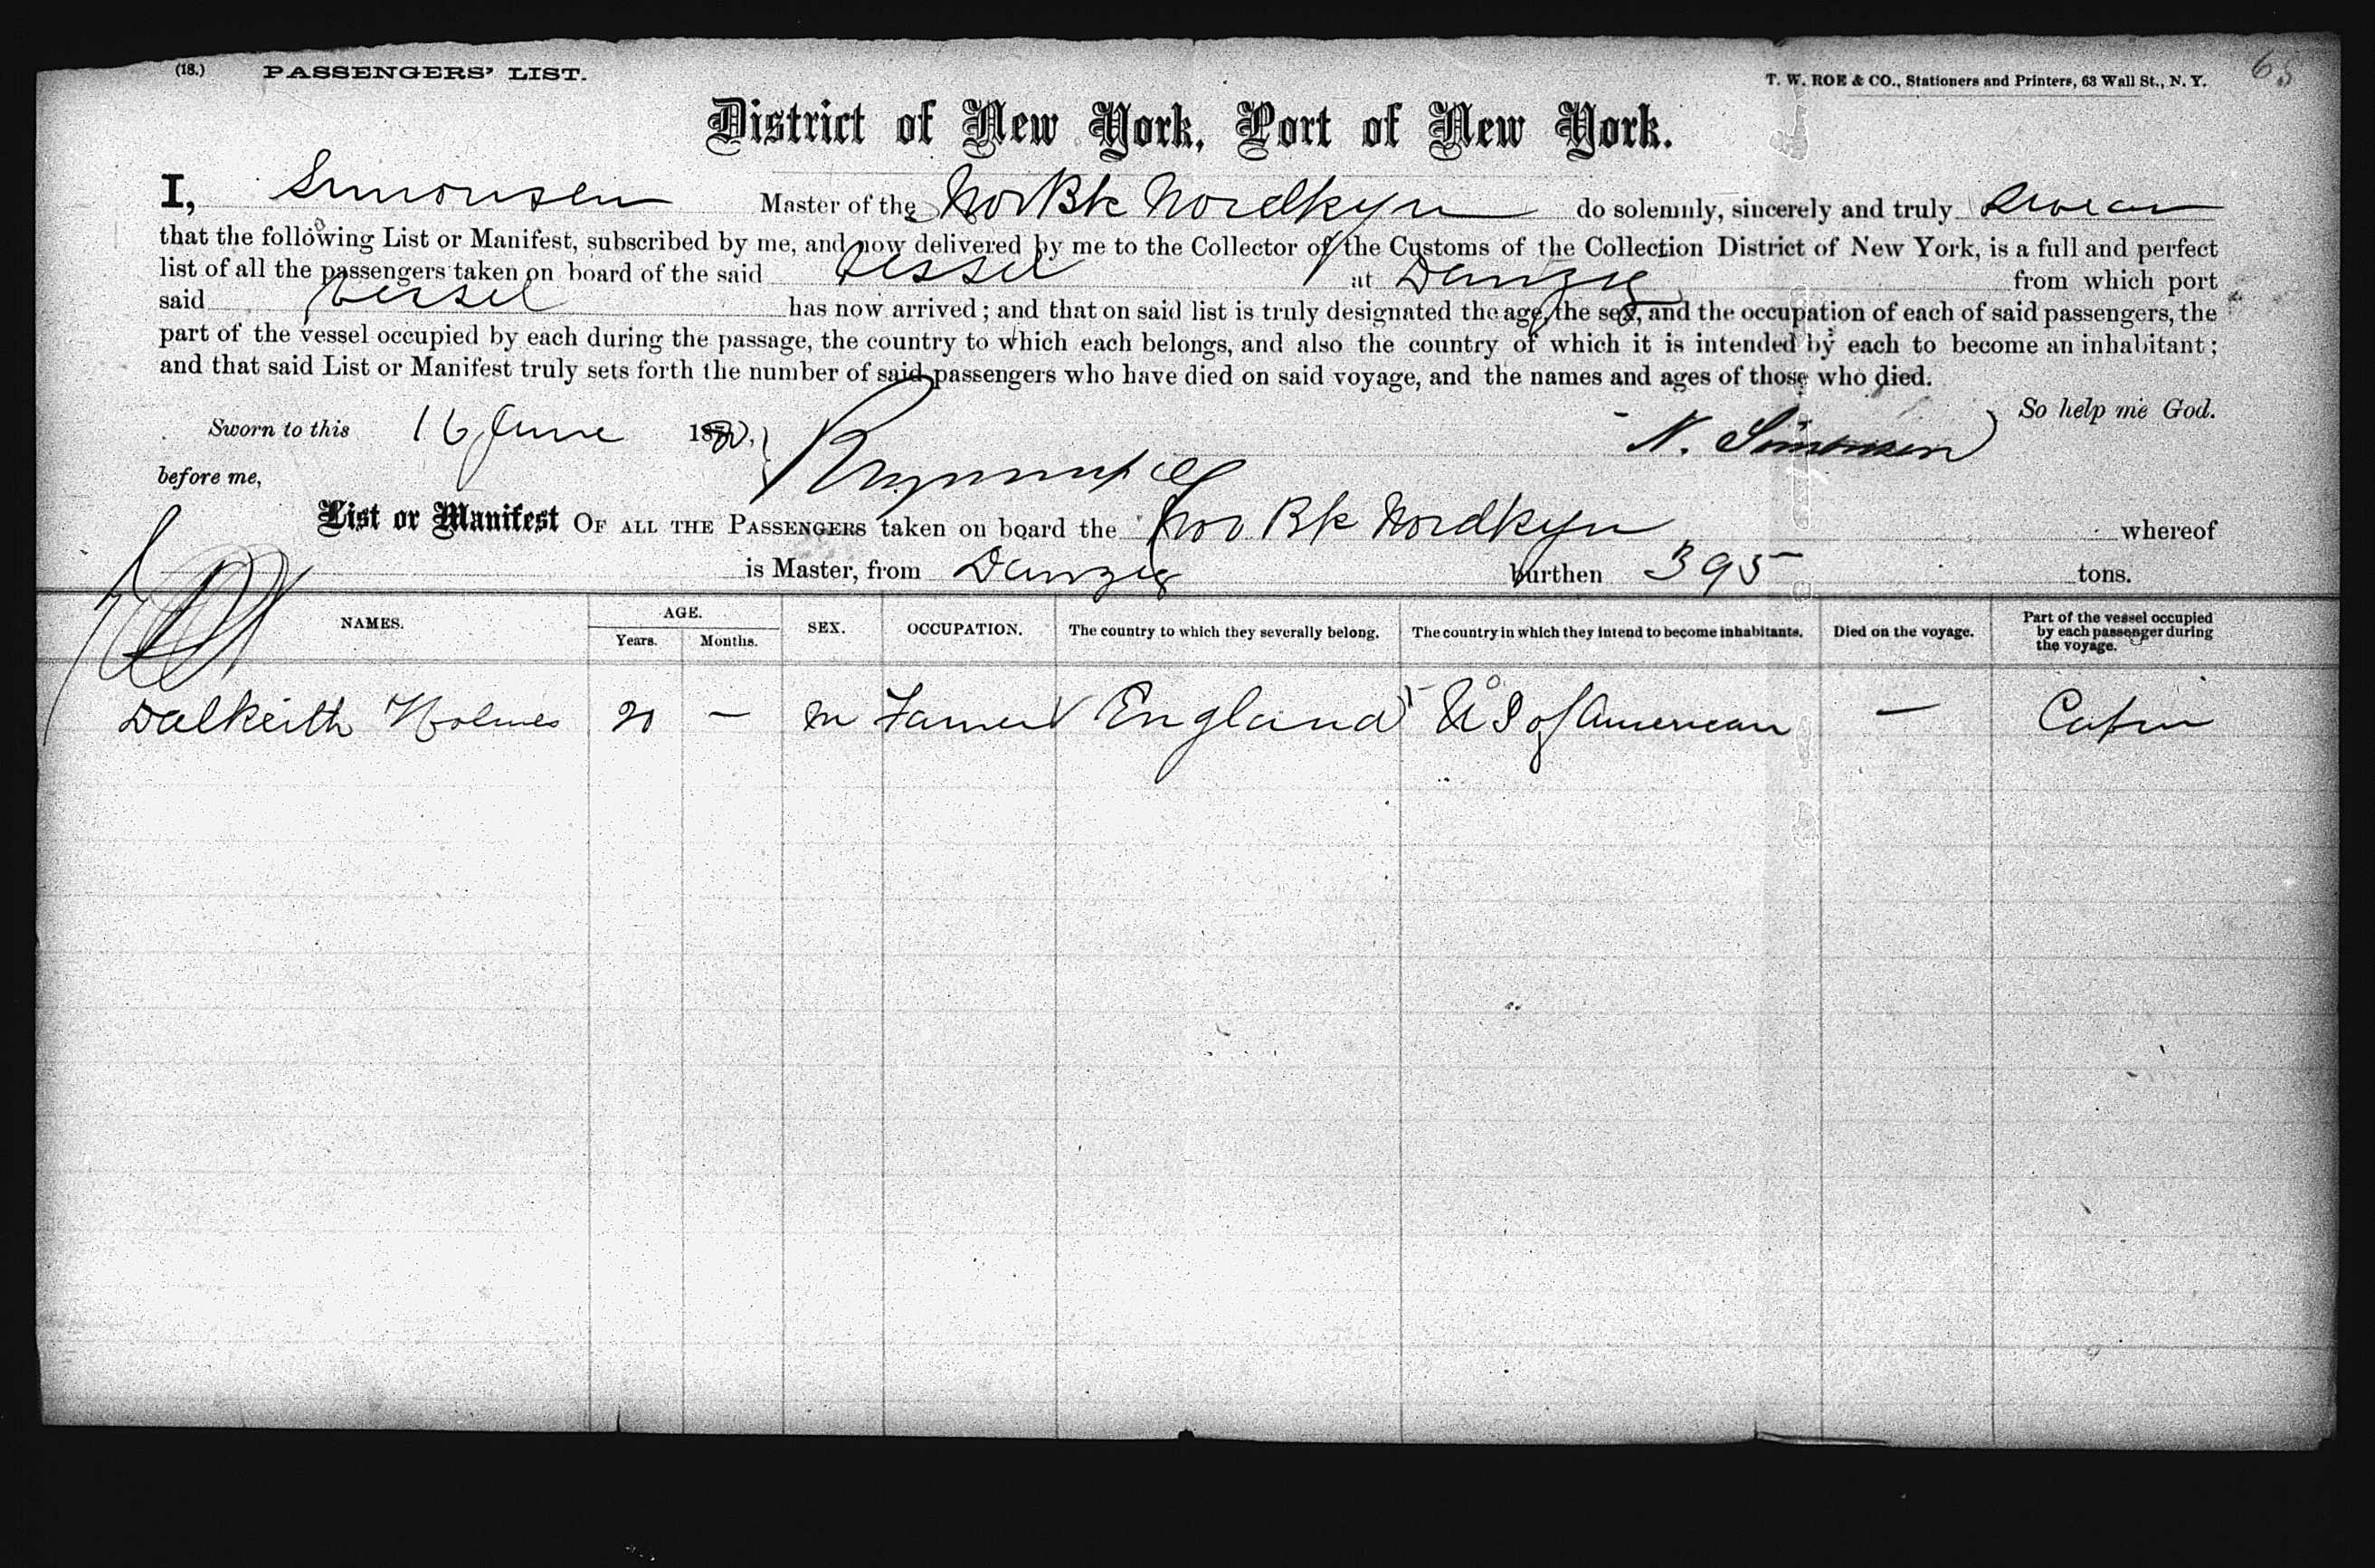 (18.) PASSENGERS' LIST. T. W. ROE & CO., Stationers and Printers, 63 Wall St., N. Y. 65
District of New York, Port of New York.
I, Simonsen Master of the Nor Bk Nordkyn do solemnly, sincerely and truly Swear
that the following List or Manifest, subscribed by me, and now delivered by me to the Collector of the Customs of the Collection District of New York, is a full and perfect
list of all the passengers taken on board of the said Vessel at Danzig from which port
said Vessel has now arrived; and that on said list is truly designated the age, the sex, and the occupation of each of said passengers, the
part of the vessel occupied by each during the passage, the country to which each belongs, and also the country of which it is intended by each to become an inhabitant;
and that said List or Manifest truly sets forth the number of said passengers who have died on said voyage, and the names and ages of those who died.
So help me God.
Sworn to this 16 June 1880, N. Simonsen
before me,
List or Manifest OF ALL THE PASSENGERS taken on board the Nor Bk Nordkyn whereof
is Master, from Danzig burthen 395 tons.
NAMES. AGE. Years. Months. SEX. OCCUPATION. The country to which they severally belong. The country in which they intend to become inhabitants. Died on the voyage. Part of the vessel occupied by each passenger during the voyage.
Dalkeith Holmes 20 — m Farmer England U S of American — Cabin